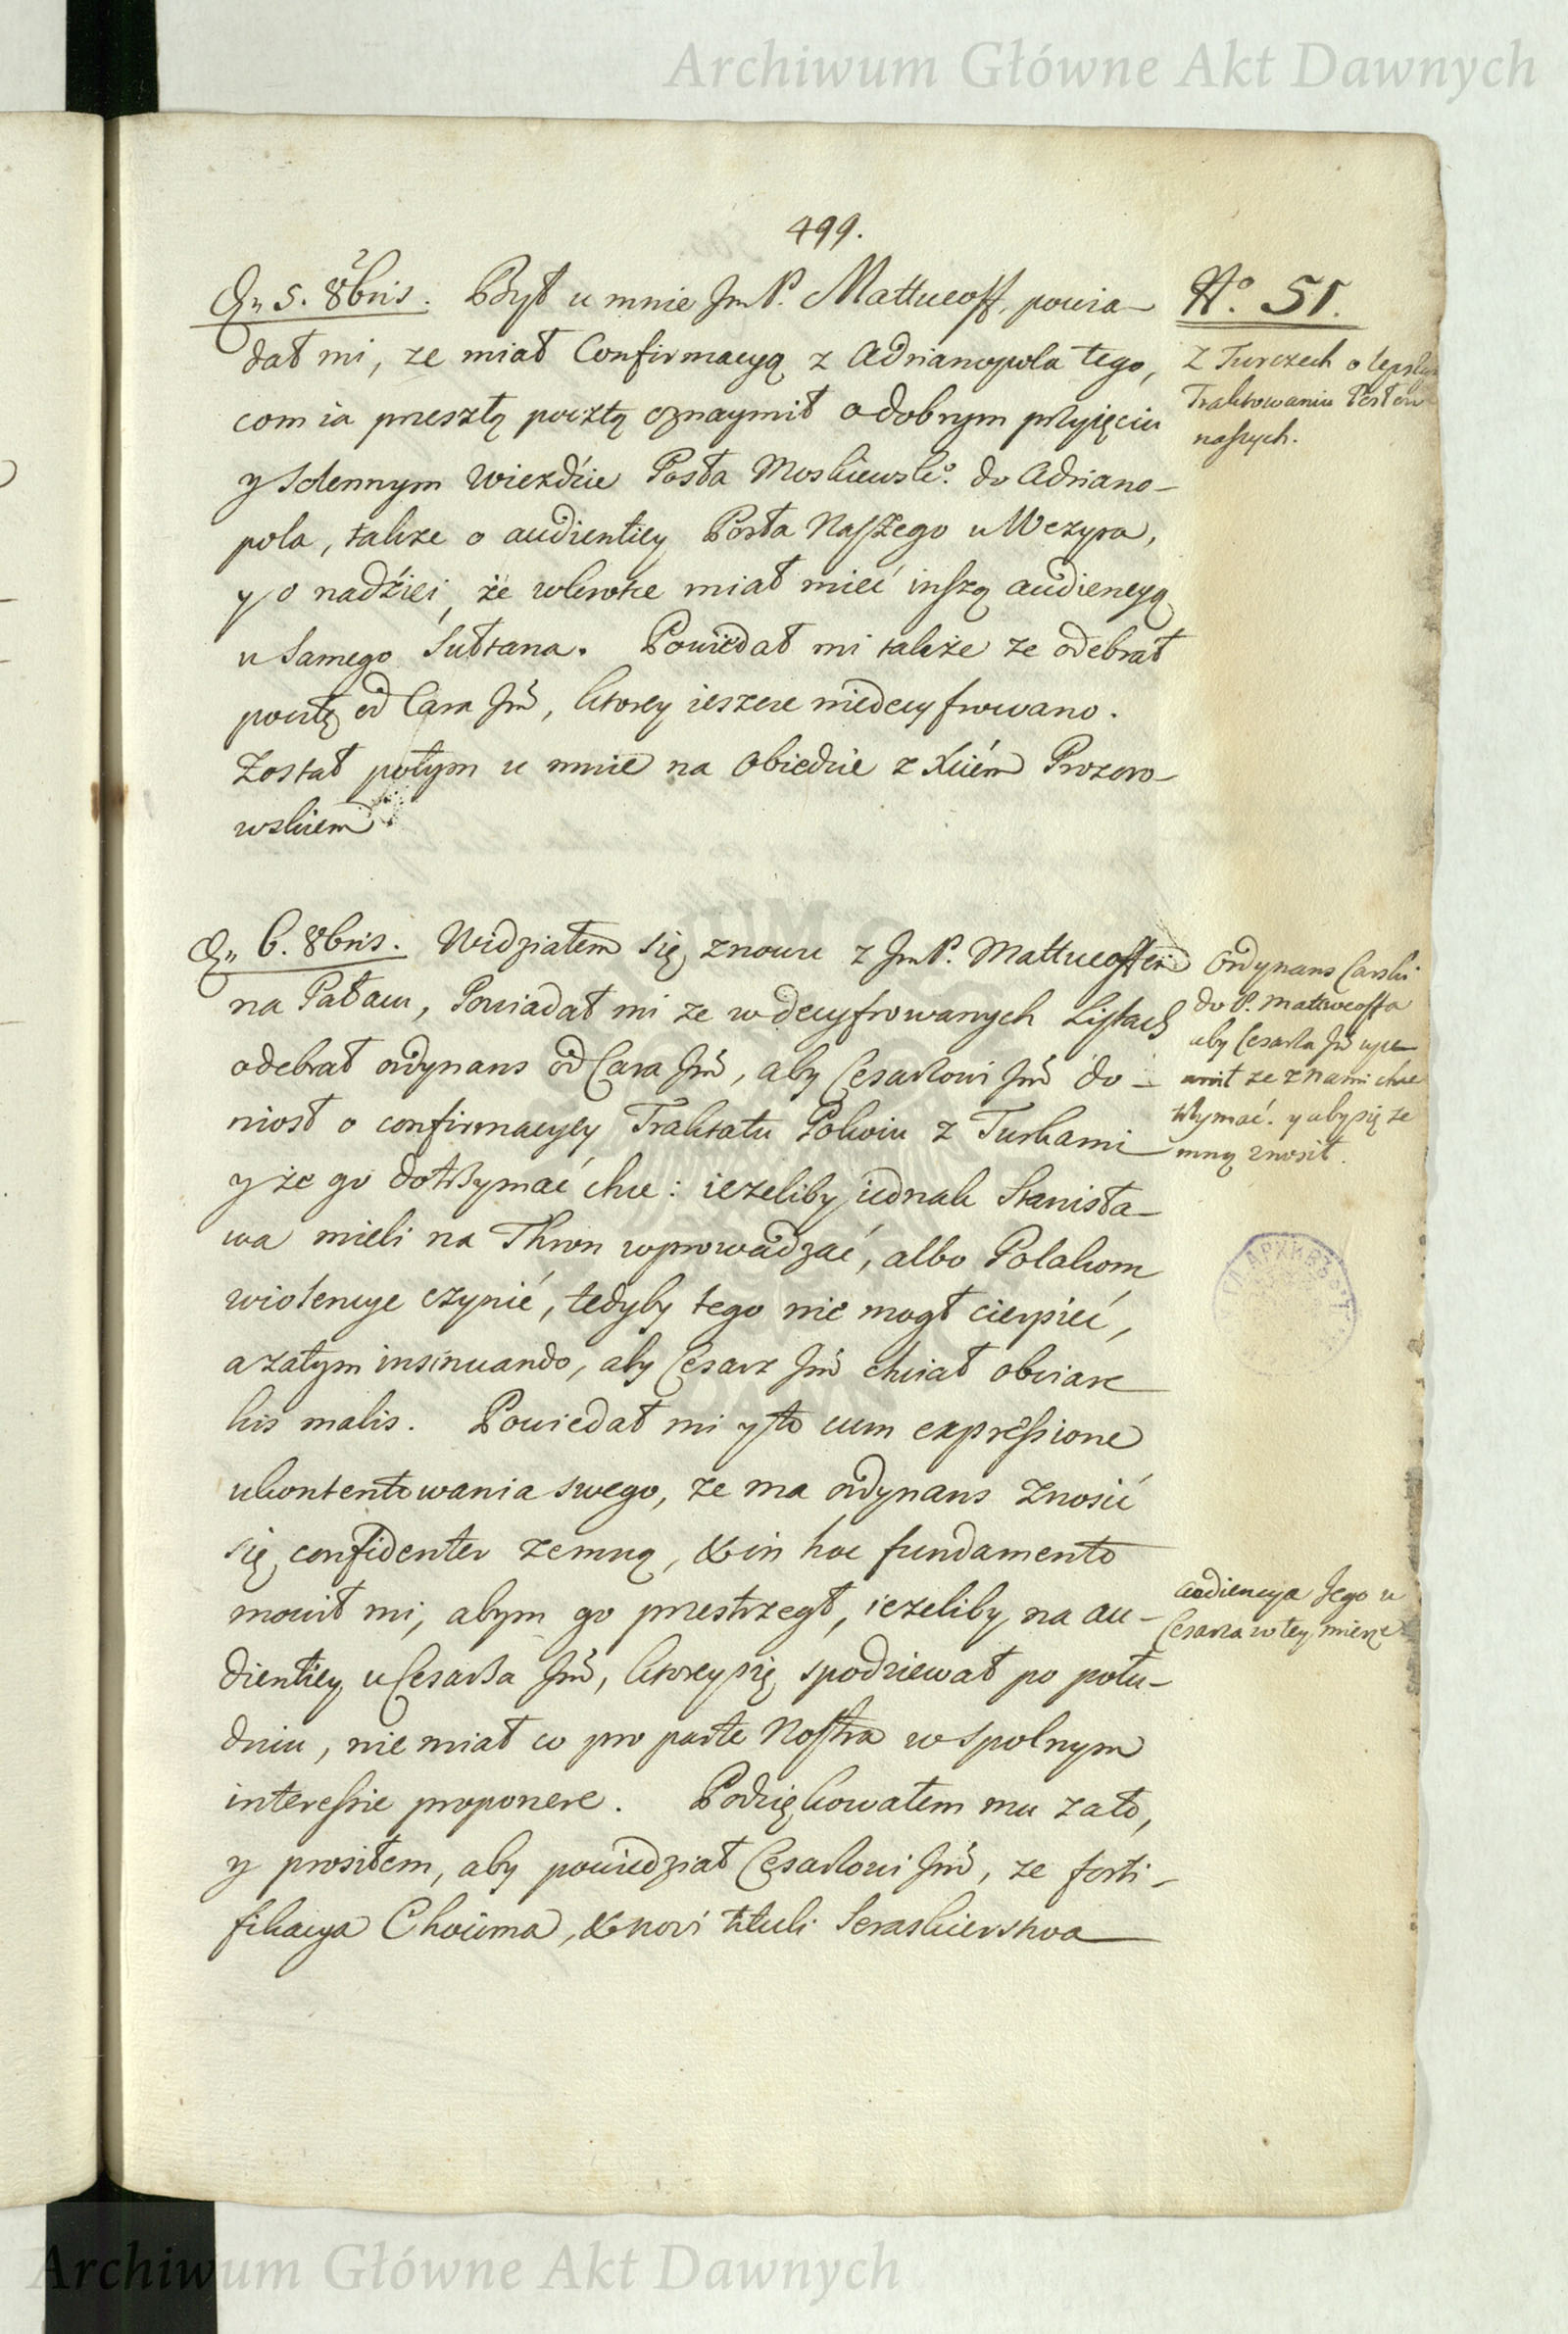 Archiwum Główne Akt Dawnych
499.
Dn 5. 8bris. Był u mnie JmP. Mattueoff, powia-
dał mi, ze miał Confirmacyą z Adrianopola tego,
com ia przeszłą pocztą oznaymił o dobrym przyięciu
y solennym wiezdzie Posła Moskiewskio. do Adriano-
pola, takze o audientiey Posła Naszego u Wezyra,
y o nadźiei, że wkrotce miał mieć inszą audiencyą
u samego Sułtana. Powiedał mi także ze odebrał
pocztę od Cara Jm, ktorey ieszcze niedecyfrowano.
Został potym u mnie na obiedzie z Xciem Prozoro-
wskiem.
No. 51.
Z Turczech o lepszym
Traktowaniu Posłow
naszych.
Dn 6. 8bris. Widziałem się znowu z JmP. Mattueoffem
na Pałacu, Powiadał mi ze w decyfrowanych Listach
odebrał ordynans od Cara Jm, aby Cesarzowi Jm do-
niosł o confirmacyey Traktatu Pokoiu z Turkami
y że go dotrzymać chce: ieżeliby iednak Stanisła-
wa mieli na Thron wprowadzać, albo Polakom
wiolencye czynić, tedyby tego nie mogł cierpieć,
a zatym insinuando, aby Cesarz Jm chciał obviare
his malis. Powiedał mi y to cum expressione
ukontentowania swego, ze ma ordynans znosić
się confidenter zemną, & in hoc fundamento
mowił mi, abym go przestrzegł, ieżeliby na au-
dientiey u Cesarza Jm, ktorey się spodziewał po połu-
dniu, nie miał co pro parte Nostra w spolnym
interessie proponere. Podziękowałem mu za to,
y prosiłem, aby powiedział Cesarzowi Jm, ze forti-
fikacya Chocima, & novi tituli Seraskierstwa
Ordynans Carski
do P. Mattueoffa
aby Cesarza Jm upe-
wnił ze z nami chce
trzymać. y aby się ze
mną znosił.
Audiencya Jego u
Cesarza w tey mierze
Archiwum Główne Akt Dawnych